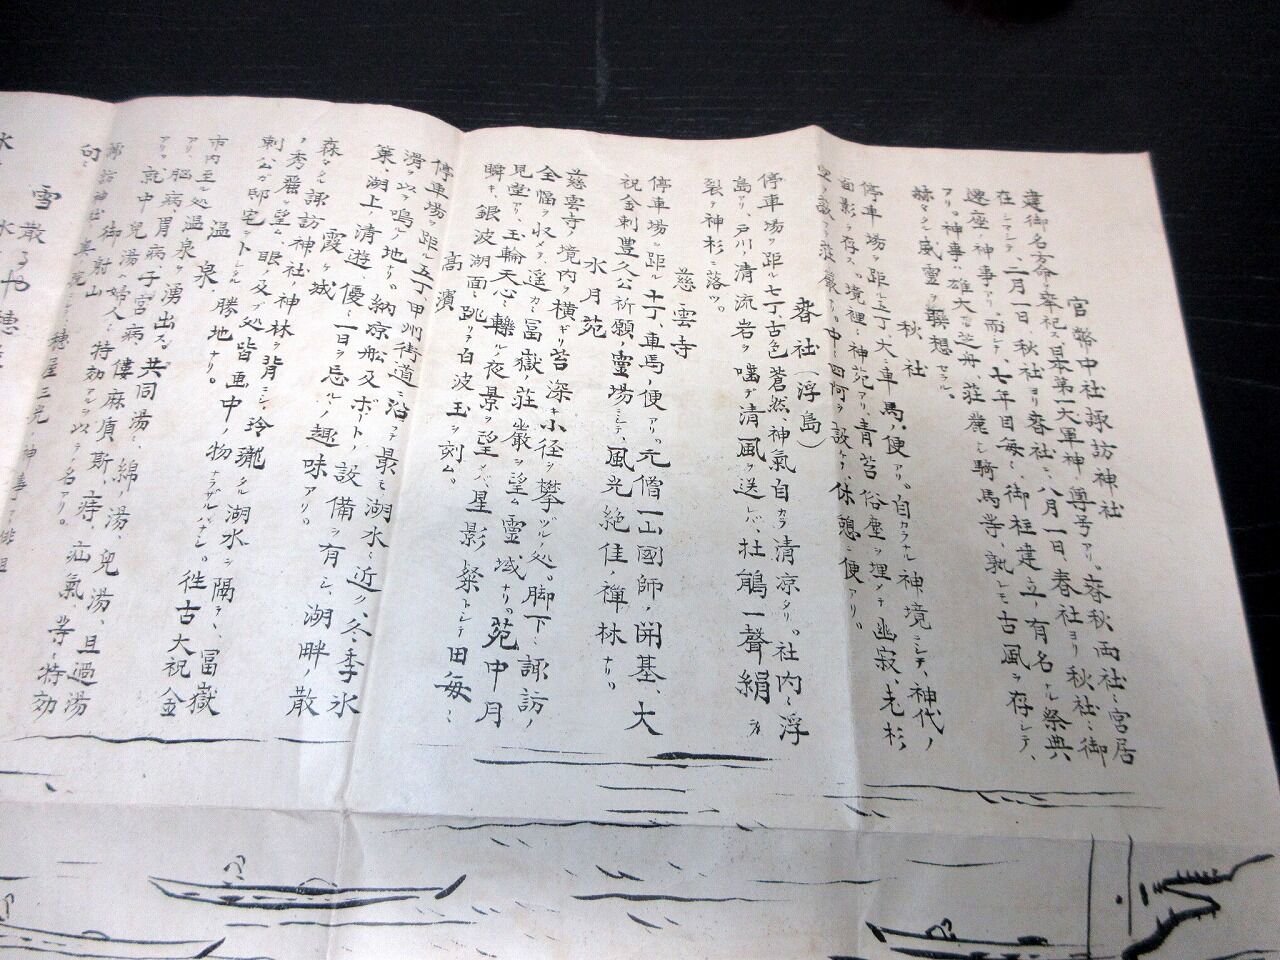 官幣中社諏訪神社
建御名方命ヲ奉祀ス日本第一大軍神ノ尊号アリ。春秋両社ニ宮居
在シマシテ、二月一日秋社ヨリ春社ニ、八月一日春社ヨリ秋社ニ御
遷座ノ神事アリ。而シテ七年目毎ニ御柱建立ノ有名ナル祭典
アリ。神事ハ雄大ニ 荘麗ニシ騎馬等、孰レモ古風ヲ存シテ、
赫々タル威霊ヲ聯想セシム。
秋社
停車場ヲ距ル三丁大ニ車馬ノ便アリ。自カラナル神境ニシテ、神代ノ
面影ヲ存ス。境裡ニ神苑アリ青苔俗塵ヲ埋メテ幽寂、老杉
荘厳ナリ。 四阿ヲ設ケテ休憩ニ便アリ。
春社(浮島)
停車場ヲ距ル七丁古色蒼然、神氣自カラ清凉タリ。社内ニ浮
島アリ、戸川ノ清流岩ヲ噛ンデ清風ヲ送レバ、杜鵑一聲絹ヲ
裂ク神杉ニ落ツ。
慈雲寺
停車場ヲ距ル十丁、車馬ノ便アリ。元僧一山國師ノ開基、大
祝金刺豊久公祈願ノ霊場ニシテ、風光絶佳ノ禅林ナリ。
水月苑
慈雲寺ノ境内ヲ横ギリ苔深キ小径ヲ攀ヅル処。脚下ニ諏訪ノ
全幅ヲ収メテ、遥カニ冨嶽ノ荘嚴ヲ望ム霊域ナリ。苑中月
見堂アリ、玉輪天心ニ轢ルノ夜景ヲ望メバ、星影燦トシテ田毎ニ
瞬キ、銀波湖面ニ跳リテ白波玉ヲ刻ム。
高濱
停車場ヲ距ル五丁、甲州街道ニ沿ヒテ最モ湖水ニ近ク、冬季氷
滑ヲ以テ鳴ル地ナリ。納凉船及ボートノ設備ヲ有シ、湖畔ノ散
策、湖上ノ清遊、優ニ一日ヲ忘ルノ趣味アリ。
霞ヶ城
森々タル諏訪神社ノ神林ヲ背ニシ、玲瓏タル湖水ヲ隔テヽ冨嶽
ノ秀麗ヲ望ム、眼ノ及ブ処皆画中ノ物ナラザルハナシ。往古大祝金
刺公ガ邸宅ヲトシタル勝地ナリ。
温泉
市内至ル処温泉ヲ湧出ス。共同湯ニ綿ノ湯、兒湯、旦過湯
アリ、脳病、胃病、子宮病、僂麻質斯、痔、疝氣等ニ特効
アリ。就中兒湯ハ婦人ニ特効アルヲ以テ名アリ。
御射山
諏訪神社ノ奥ノ院ニシテ穂屋三光ノ神事アリ俳祖
句ニ
雪散るや穂